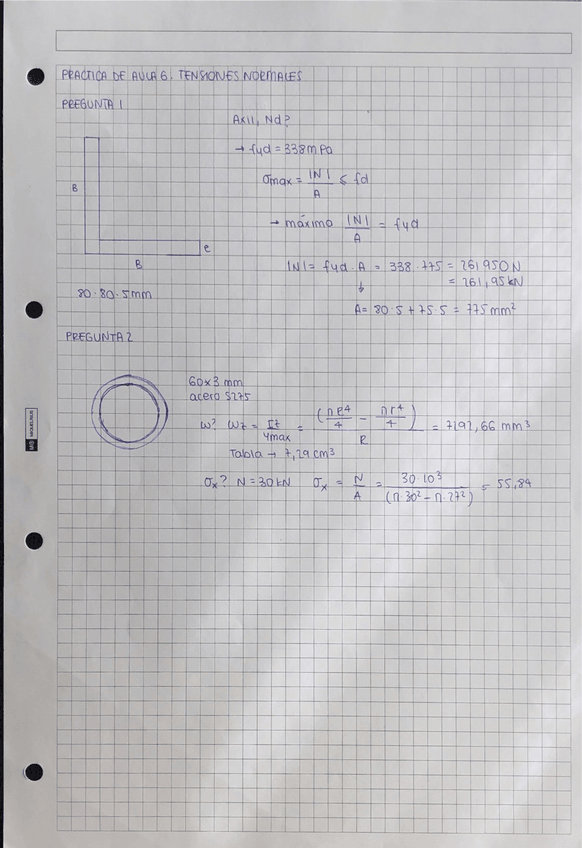 PRACTICA DE AULA 6: TENSIONES NORMALES
PREGUNTA 1
Axil, Nd?
→ fyd = 338 mPa
σmax = |N| / A ≤ fd
→ máximo |N| / A = fyd
|N| = fyd · A = 338 · 775 = 261950 N
= 261,95 kN
↓
A = 80·5 + 75·5 = 775 mm²
B
e
B
80·80·5mm
PREGUNTA 2
60x3 mm
acero S275
W? Wz = Iz / Ymax = (πR⁴/4 - πr⁴/4) / R = 7292,66 mm³
Tabla → 7,29 cm³
σx? N = 30 kN σx = N / A = 30·10³ / (π·30² - π·27²) = 55,84
MIQUELRIUS